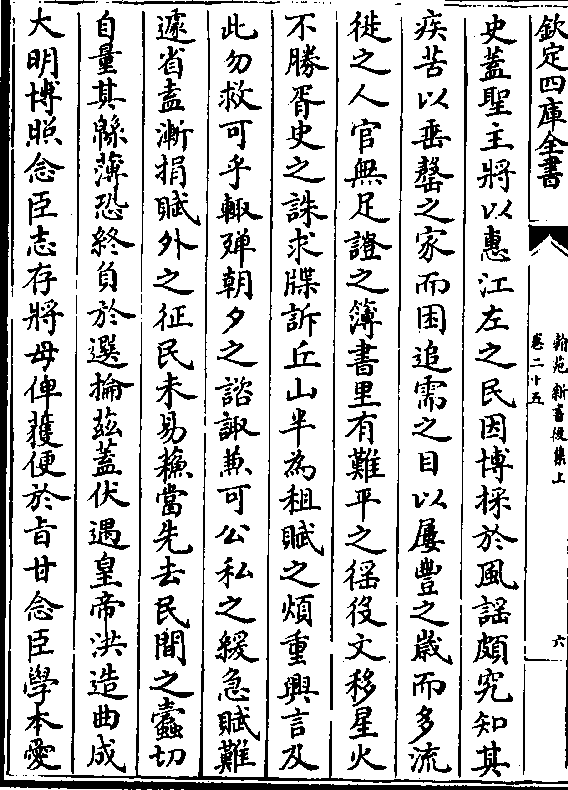 欽定四庫全書
翰苑新書後集上
卷二十五
六
史蓋聖主將以惠江左之民因博採於風謡頗究知其
疾苦以垂罄之家而困追需之目以屢豐之嵗而多流
徙之人官無足證之簿書里有難平之徭役文移星火
不勝胥史之誅求牒訴丘山半為租賦之煩重興言及
此勿救可乎輙殫朝夕之諮諏兼可公私之緩急賦難
遽省盍漸捐賦外之征民未易蘓當先去民間之蠧切
自量其緜薄恐終負於選掄兹蓋伏遇皇帝洪造曲成
大明博照念臣志存將母俾蕕便於㫖甘念臣學本愛